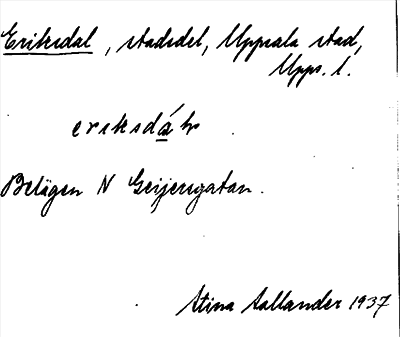 Eriksdal, stadsdel, Uppsala stad,
Upps. l.
eriksdá
Belägen N Geijersgatan.
Stina Sallander 1937